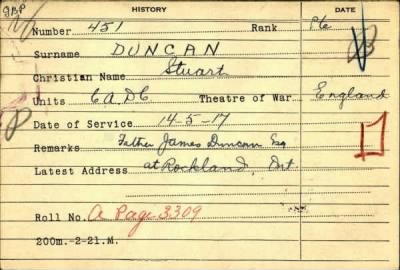 GBP HISTORY DATE
Number 451 Rank Pte
Surname DUNCAN
Christian Name Stuart
Units 6A.DC Theatre of War England
Date of Service 14-5-17
Remarks Father James Duncan Esq
Latest Address at Rockland, Ont.
Roll No. A Page 3309
200m.-2-21.M.